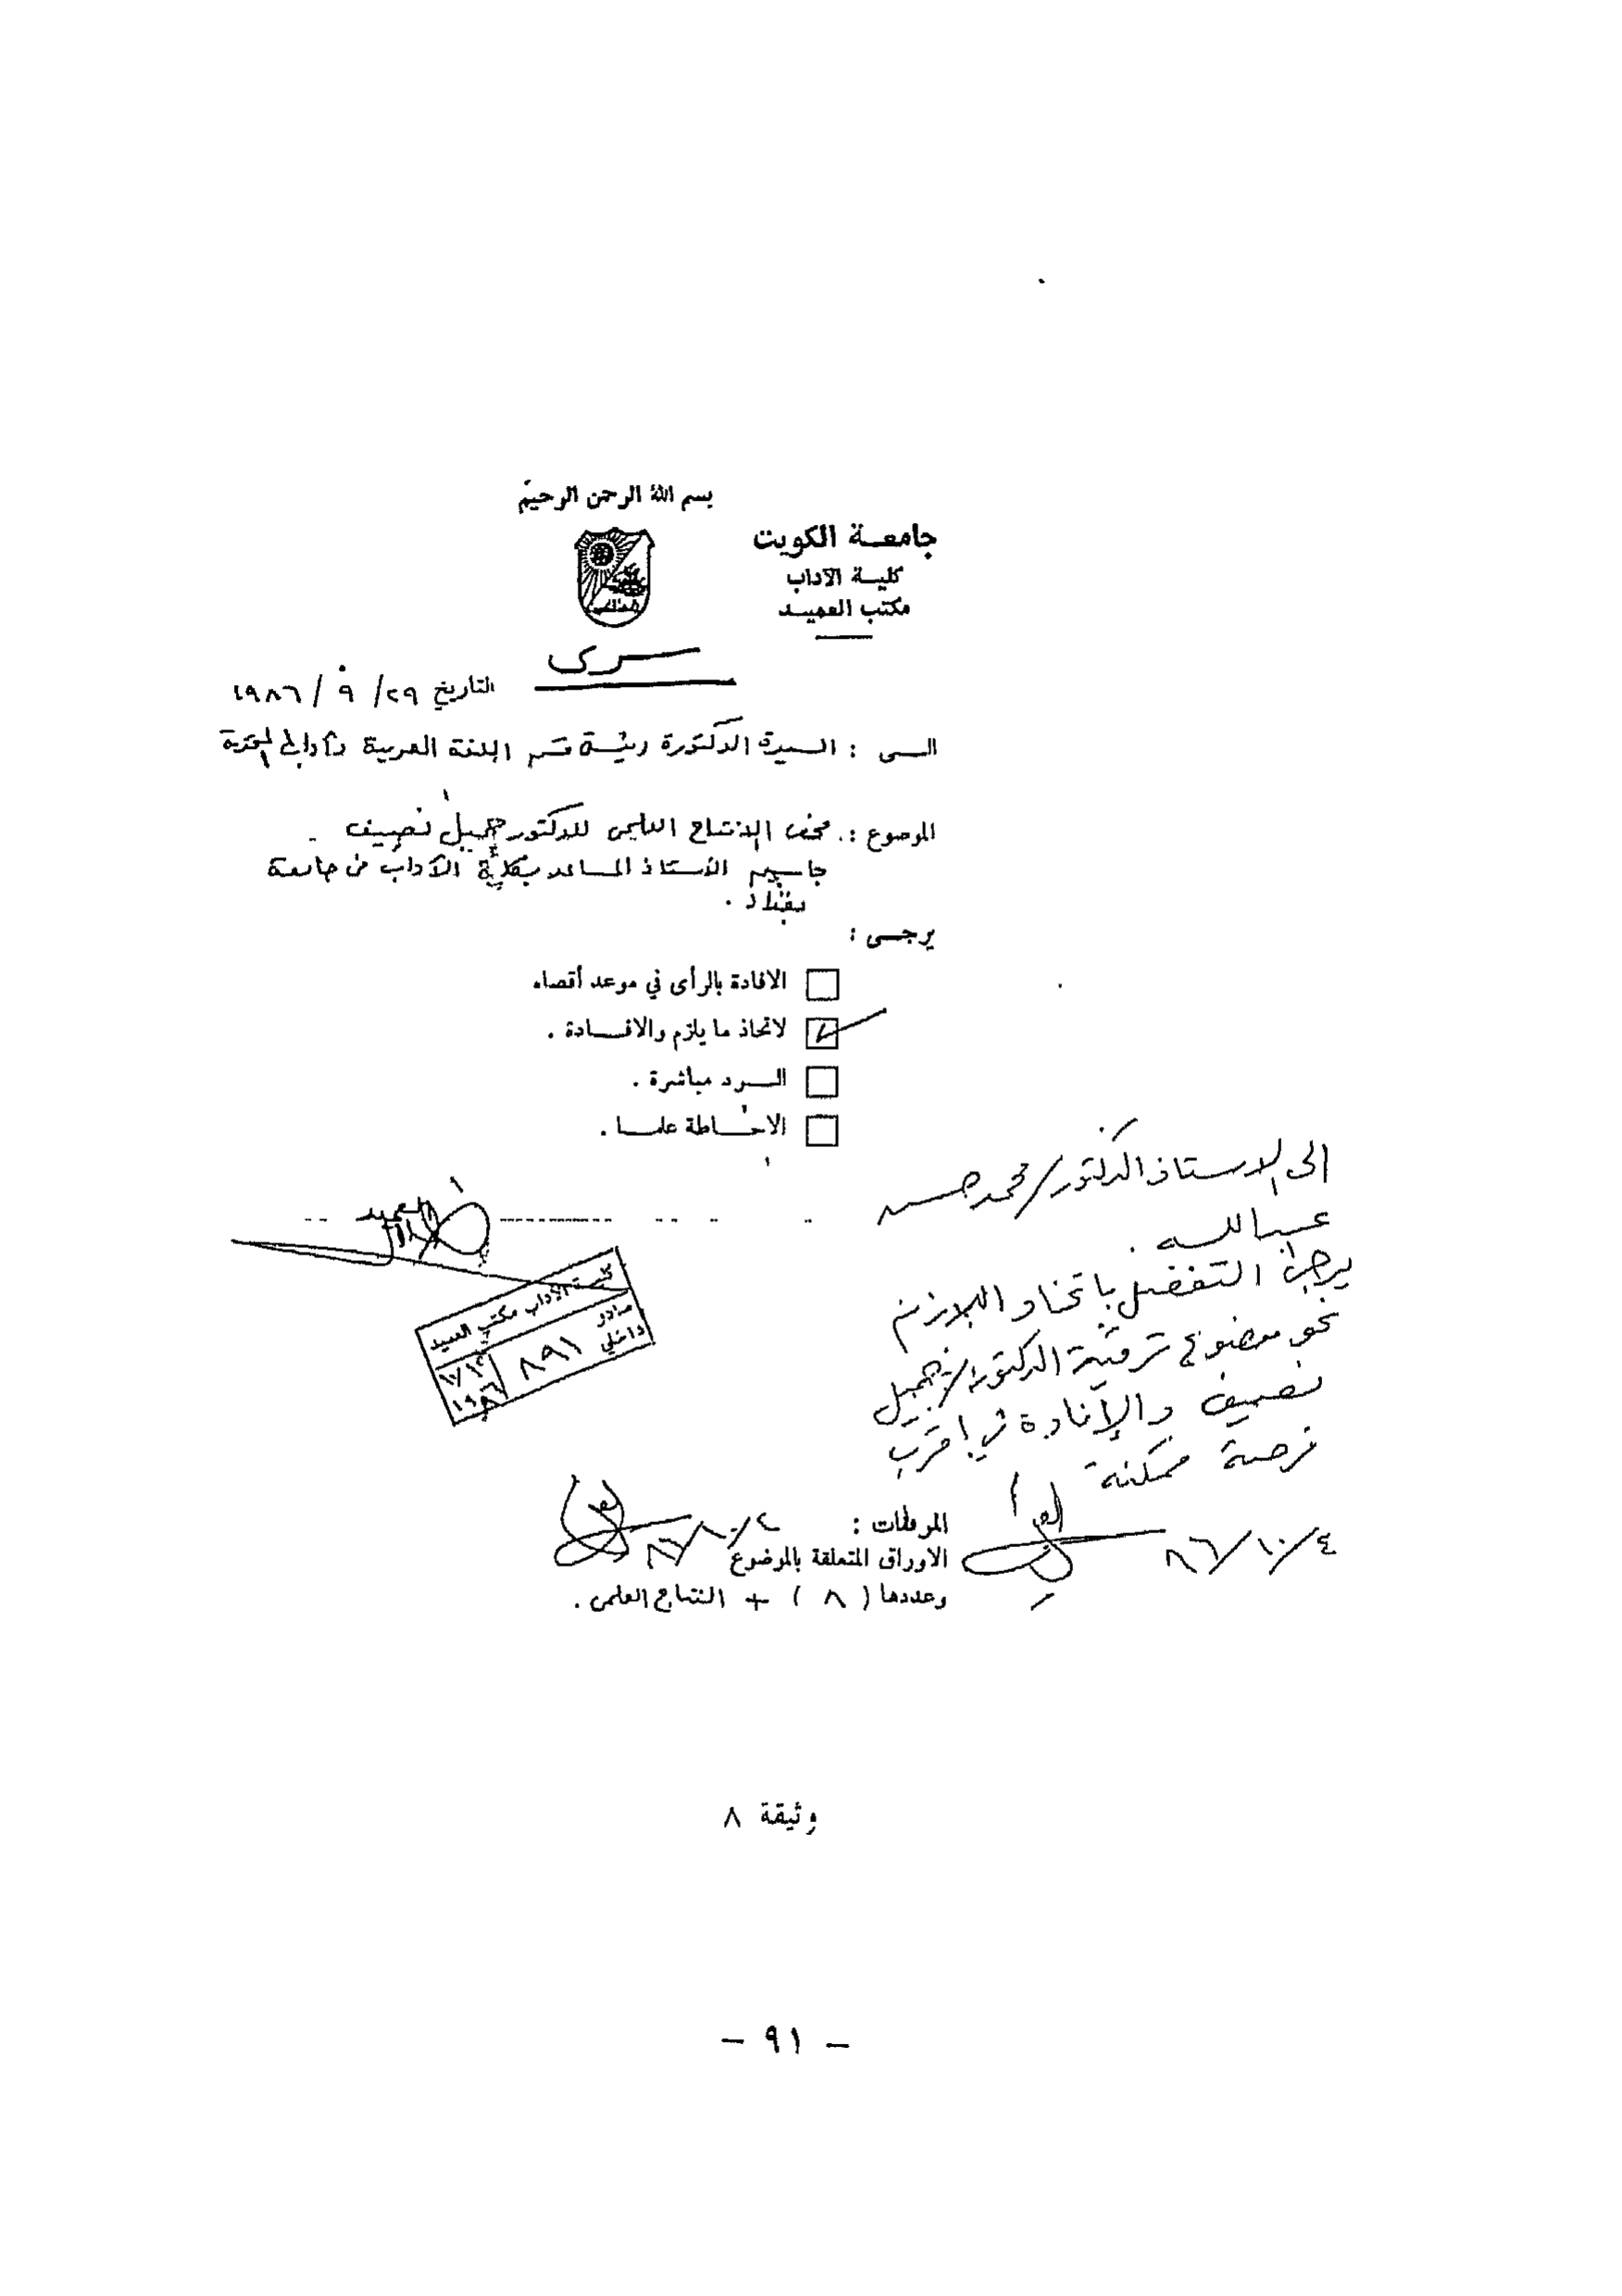 بسم الله الرحمن الرحيم
جامعة الكويت
كلية الآداب
مكتب العميد
سرى
التاريخ ٢٩/ ٩ / ١٩٨٦
الى : السيدة الدكتورة رئيسة قسم اللغة العربية وآدابها المحترمة
الموضوع : فحص الانتاج العلمى للدكتور جميل نصيف
جاسم الأستاذ المساعد بكلية الآداب من جامعة
بغداد .
يرجى :
الافادة بالرأى في موعد أقصاه
لاتخاذ ما يلزم والافادة .
الرد مباشرة .
الاحاطة علما .
العميد
كلية الآداب مكتب العميد
صادر
داخلي
٨٩١
١٩٨٦
الى الاستاذ الدكتور/ محمد حسن
عبدالله .
يرجى التفضل باتخاذ اللازم
نحو موضوع ترقية الدكتور/ جميل
نصيف والإفادة في أقرب
فرصة ممكنة
٨٦/١٠/٤
المرفقات :
٨٦/١٠/٤
الاوراق المتعلقة بالموضوع
وعددها ( ٨ ) + النتاج العلمى .
وثيقة ٨
– ٩١ –